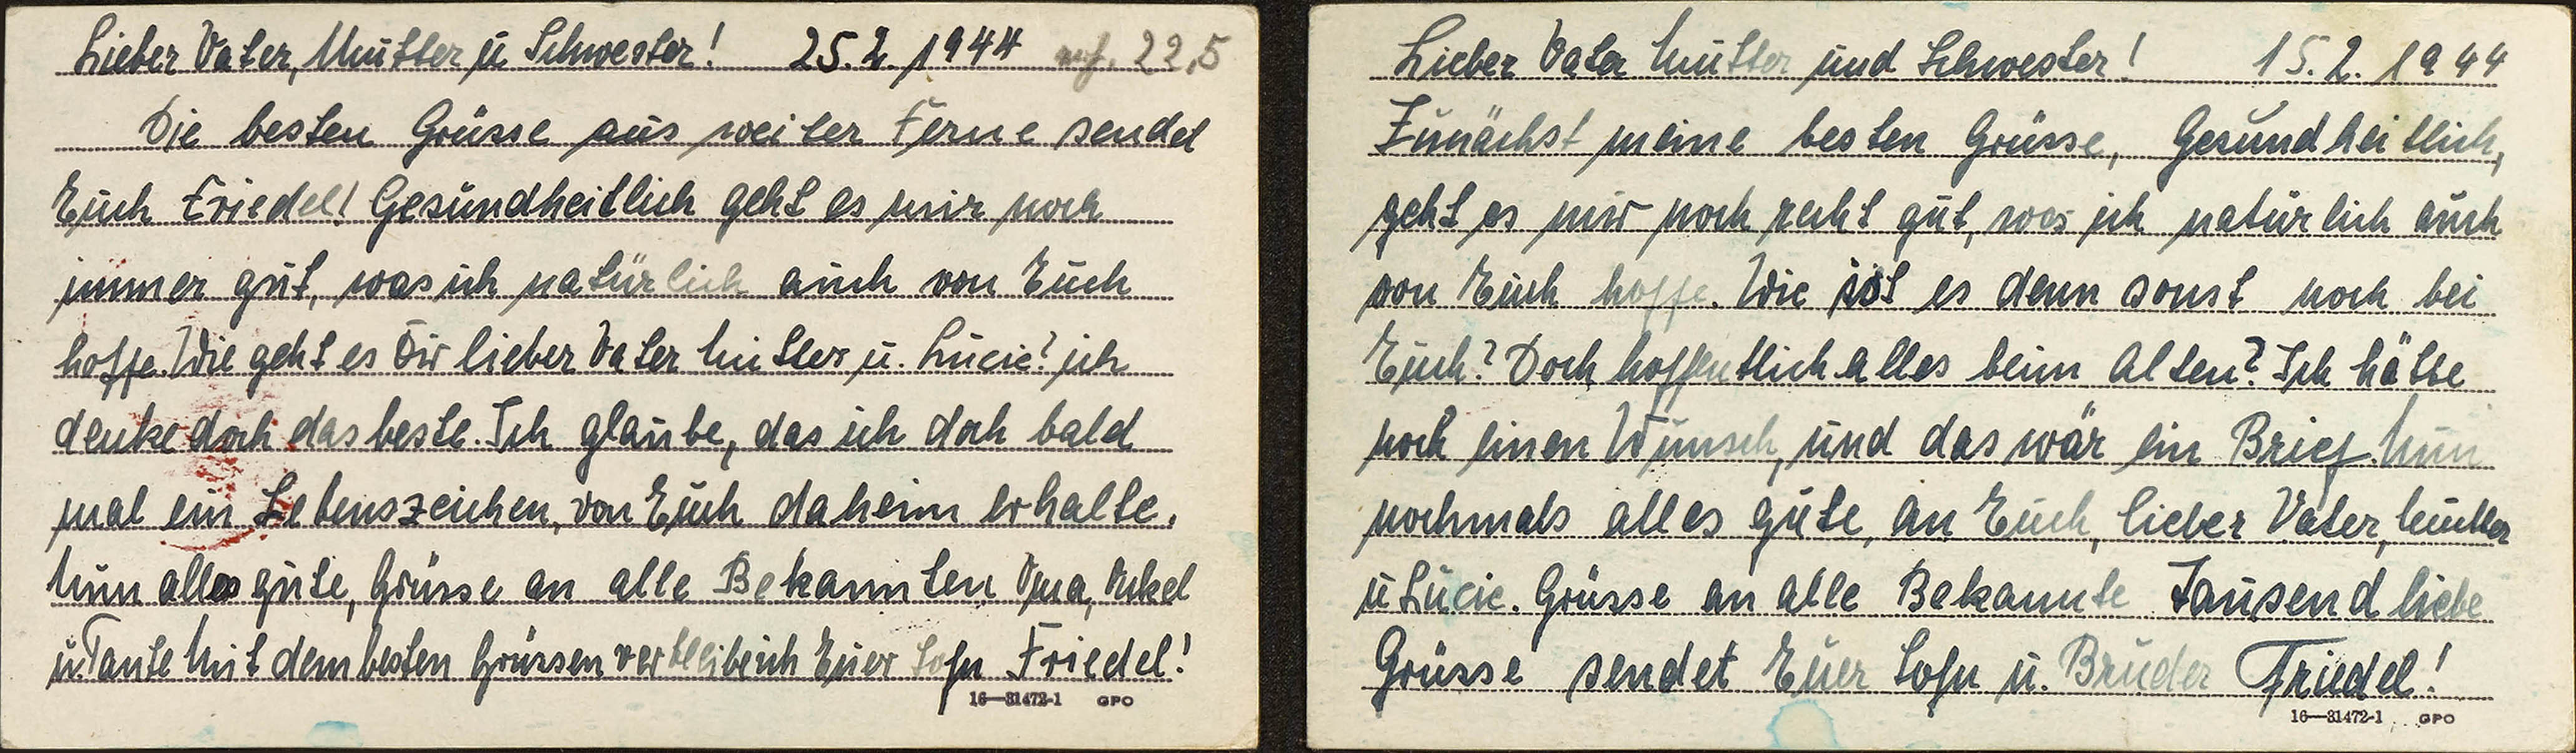 Lieber Vater, Mutter u Schwester! 25.2.1944 22,5
Die besten Grüsse aus weiter Ferne sendet
Euch Friedel! Gesundheitlich geht es mir noch
immer gut, was ich natürlich auch von Euch
hoffe. Wie geht es Dir lieber Vater Mutter u. Lucie? ich
denke doch das beste. Ich glaube, das ich doch bald
mal ein Lebenszeichen, von Euch daheim erhalte.
Nun alles gute, Grüsse an alle Bekannten Oma, Onkel
u. Tante Mit dem besten Grüssen verbleibe ich Euer Sohn Friedel!
16—31472-1 GPO
Lieber Vater Mutter und Schwester! 15.2.1944
Zunächst meine besten Grüsse, Gesundheitlich,
geht es mir noch recht gut, was ich natürlich auch
von Euch hoffe. Wie ist es denn sonst noch bei
Euch? Doch hoffentlich alles beim Alten? Ich hätte
noch einen Wunsch, und das wär ein Brief. Nun
nochmals alles gute, an Euch, lieber Vater, Mutter
u Lucie. Grüsse an alle Bekannte Tausend liebe
Grüsse sendet Euer Sohn u. Bruder Friedel!
16—31472-1 GPO